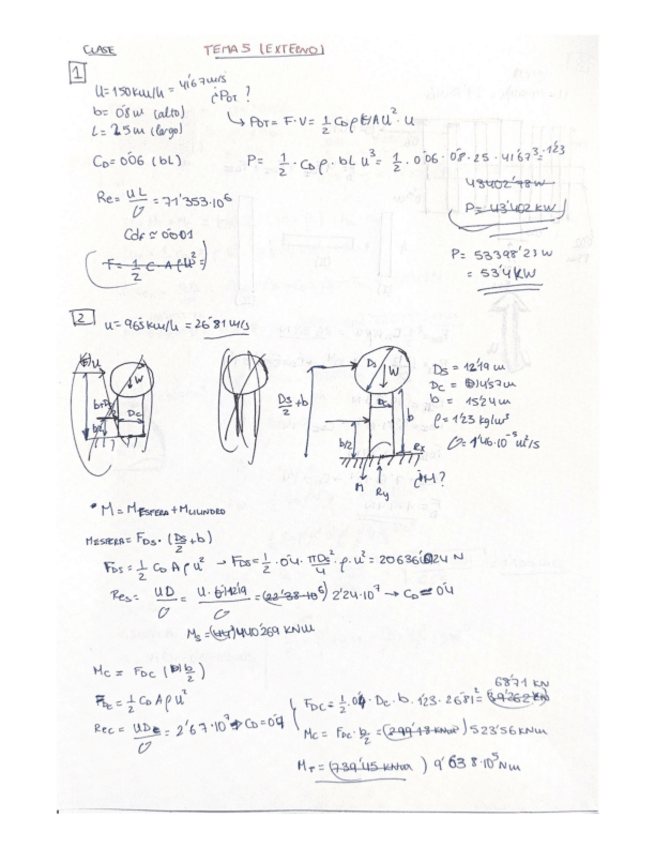 CLASE TEMA 5 (EXTERNO)
1
U = 150 km/h = 41'67 m/s ¿POT?
b = 0'8 m (alto)
L = 25 m (largo)
→ POT = F·V = 1/2 CD ρ A U² · U
CD = 0'06 (bL) P = 1/2 · CD ρ · bL U³ = 1/2 · 0'06 · 0'8 · 25 · 41'67³ · 1'23
43402'78 W
P = 43'402 KW
Re = UL/υ = 71'353·10⁶
CDf ≃ 0'001
F = 1/2 C A ρ U² =
P = 53398'23 W
= 53'4 KW
2 U = 96'5 km/h = 26'81 m/s
U
W
b+Ds
b/2
Dc
Ds/2 + b
Ds
W
Dc
b
b/2
Rx
M Ry ¿M?
Ds = 12'19 m
Dc = 4'57 m
b = 15'24 m
ρ = 1'23 kg/m³
υ = 1'46·10⁻⁵ m²/s
• M = MESFERA + MCILINDRO
MESFERA = FDs · (Ds/2 + b)
FDs = 1/2 CD A ρ U² → FDs = 1/2 · 0'4 · πDs²/4 · ρ · U² = 20636'24 N
Res = UD/υ = U·12'19/υ = (22'38·10⁶) 2'24·10⁷ → CD = 0'4
Ms = 440'269 KNm
Mc = FDC (b/2)
FDC = 1/2 CD A ρ U²
Rec = UDc/υ = 2'67·10⁷ → CD = 0'4
FDC = 1/2 · 0'4 · Dc · b · 1'23 · 26'81² = (39'262 KN) 68'71 KN
Mc = FDC · b/2 = (299'18 KNm) 523'56 KNm
MT = (739'45 KNm) 9'638·10⁵ Nm